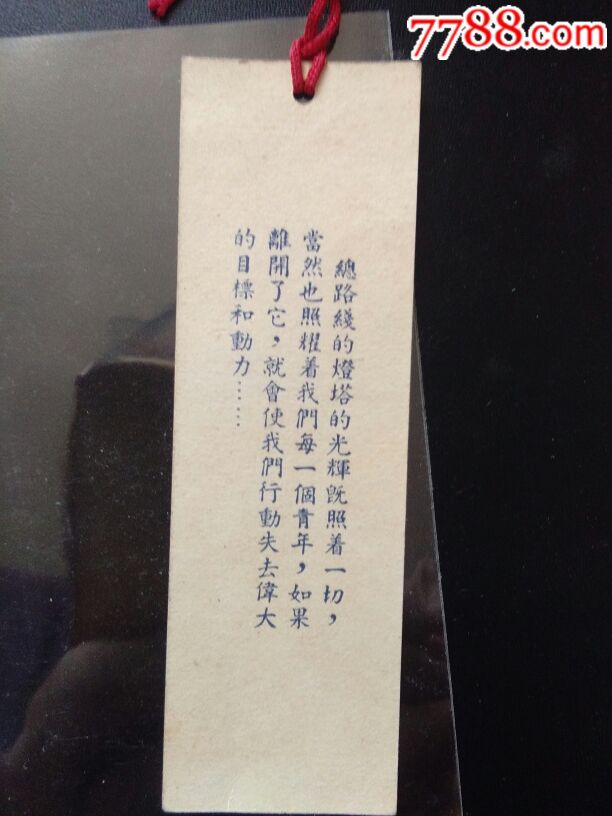 7788.com
總路綫的燈塔的光輝既照着一切，
當然也照耀着我們每一個青年，如果
離開了它，就會使我們行動失去偉大
的目標和動力……